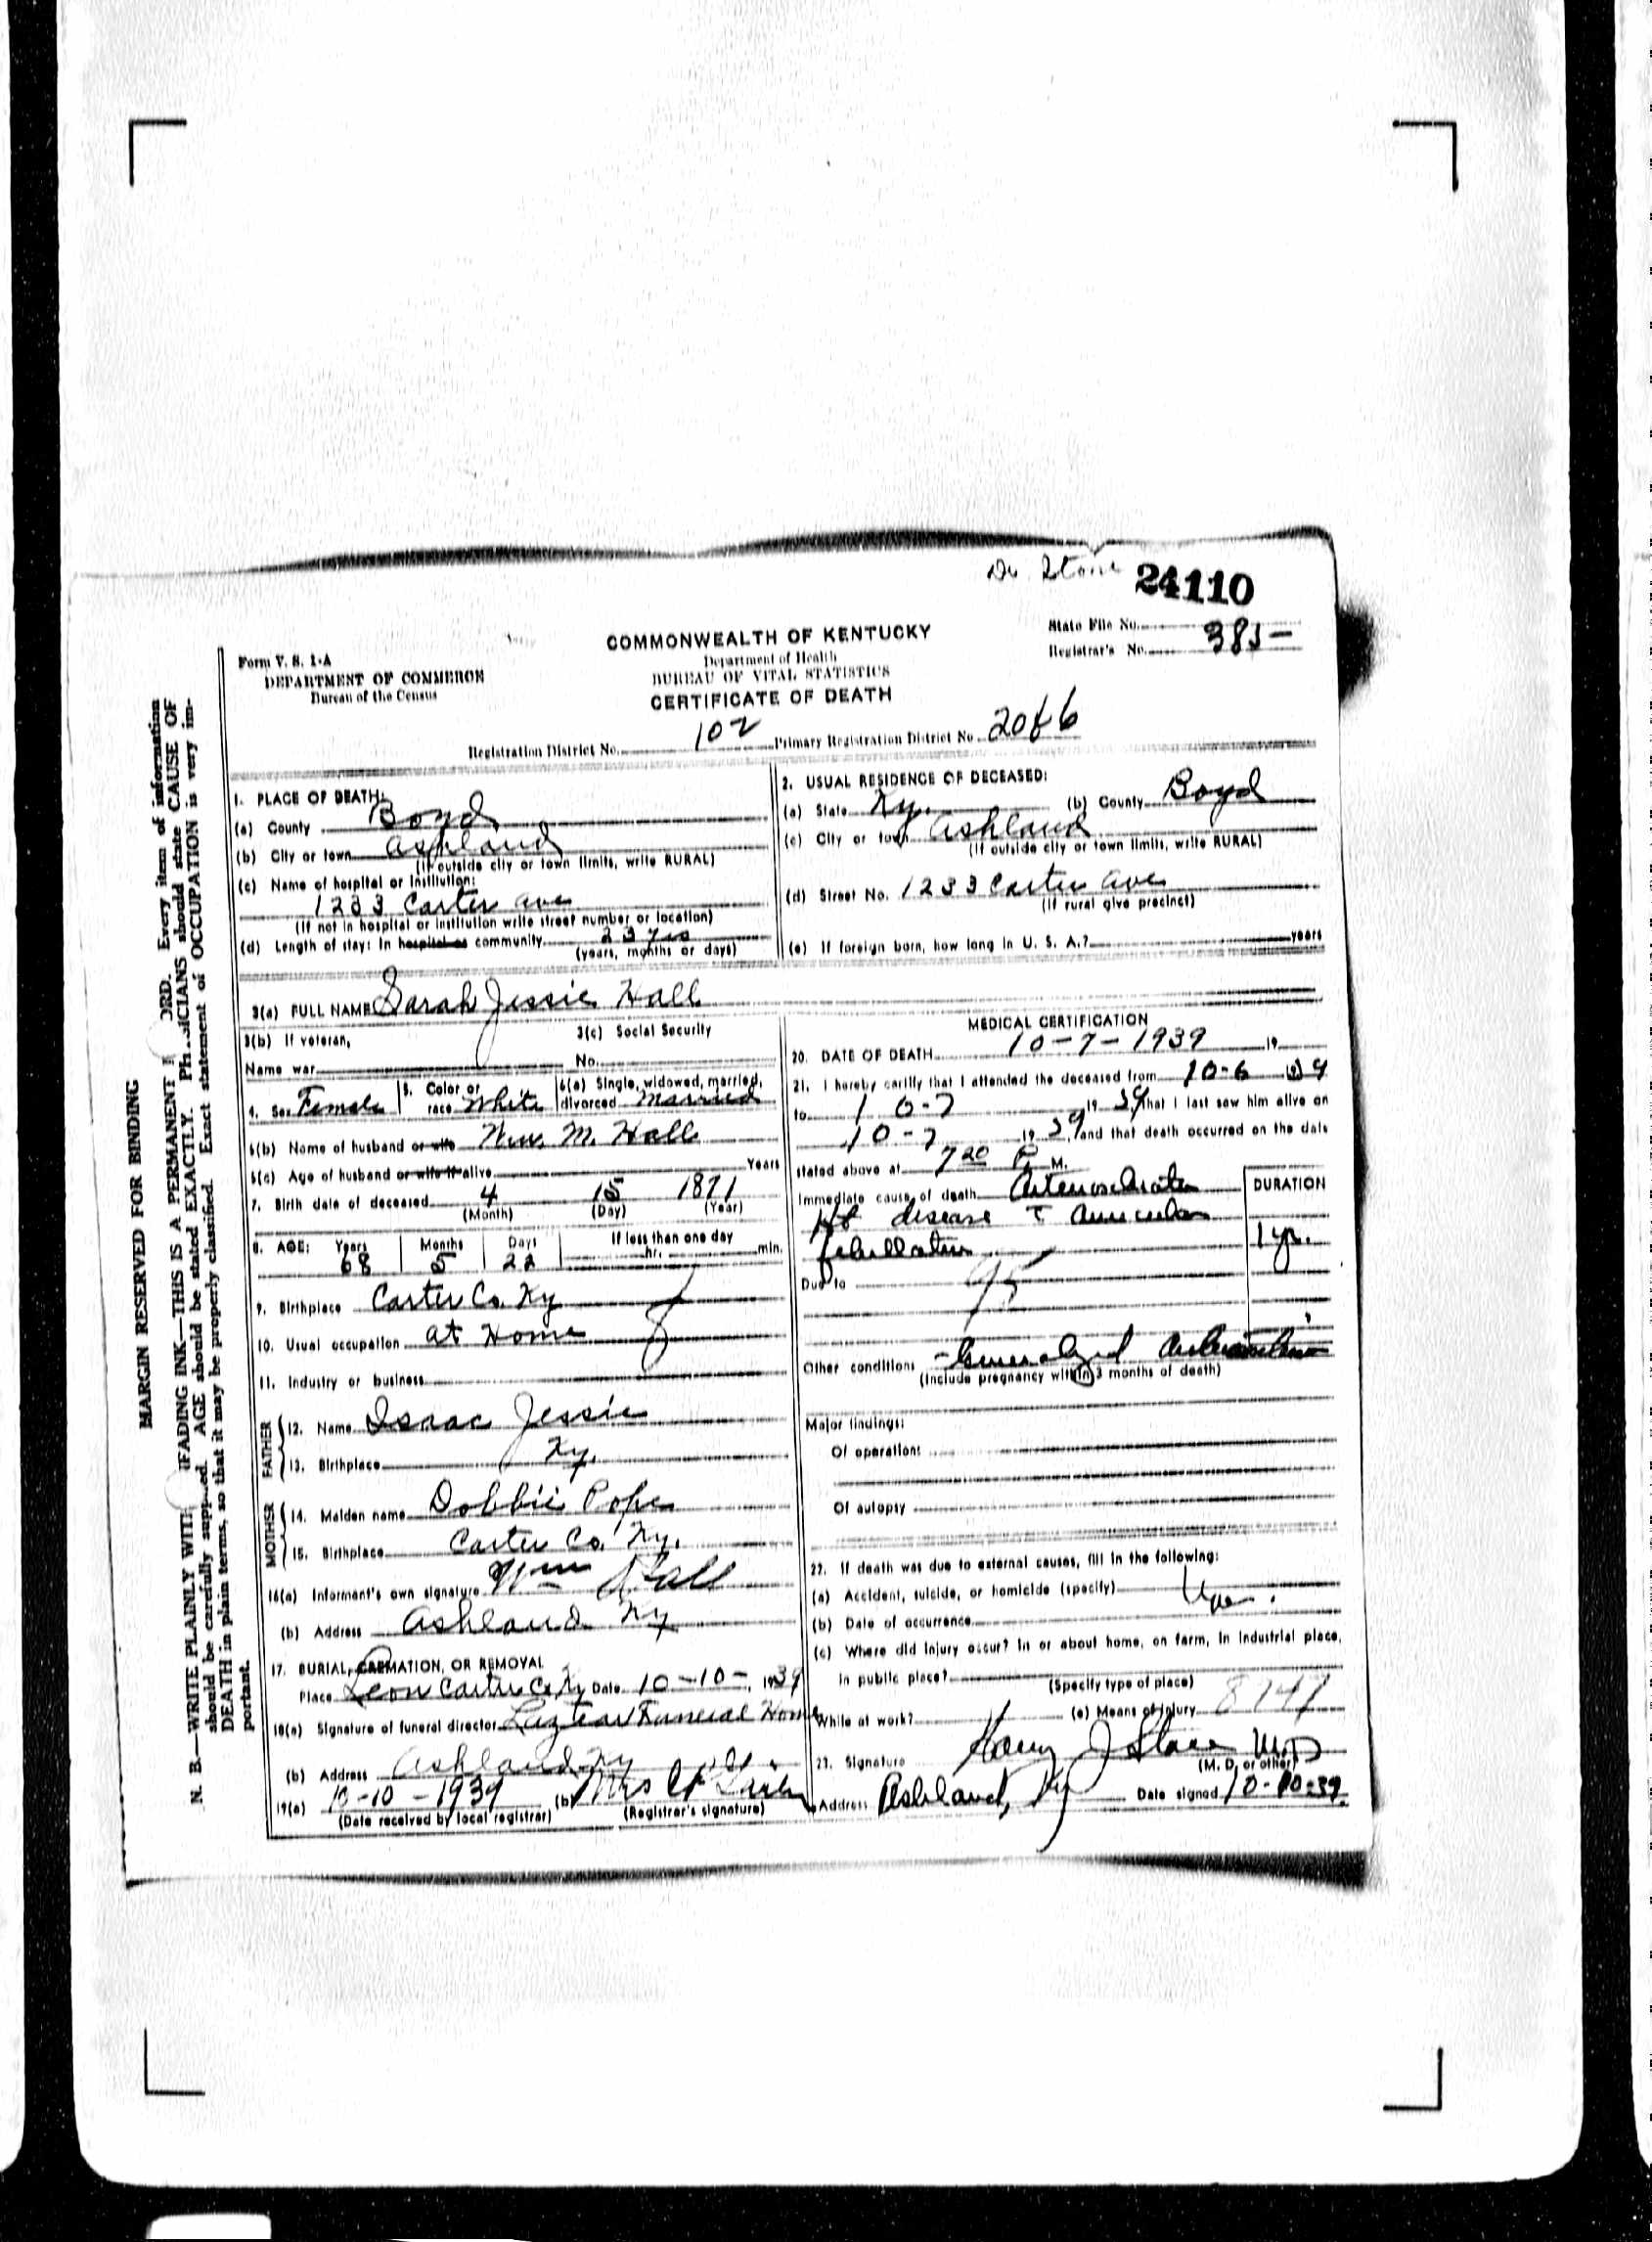 Dr Stone 24110
Form V. S. 1-A
DEPARTMENT OF COMMERCE
Bureau of the Census
COMMONWEALTH OF KENTUCKY
Department of Health
BUREAU OF VITAL STATISTICS
CERTIFICATE OF DEATH
State File No.
Registrar's No. 385-
Registration District No. 102 Primary Registration District No. 2066
1. PLACE OF DEATH:
(a) County Boyd
(b) City or town Ashland
(If outside city or town limits, write RURAL)
(c) Name of hospital or institution:
1233 Carter Ave
(If not in hospital or institution write street number or location)
(d) Length of stay: In hospital or community 23 yrs
(years, months or days)
2. USUAL RESIDENCE OF DECEASED:
(a) State Ky. (b) County Boyd
(c) City or town Ashland
(If outside city or town limits, write RURAL)
(d) Street No. 1233 Carter Ave
(If rural give precinct)
(e) If foreign born, how long in U. S. A.? years
3(a) FULL NAME Sarah Jessie Hall
3(b) If veteran,
Name war
3(c) Social Security
No.
4. Sex Female
5. Color or race White
6(a) Single, widowed, married, divorced Married
6(b) Name of husband or wife Wm. M. Hall
6(c) Age of husband or wife if alive Years
7. Birth date of deceased 4 15 1871
(Month) (Day) (Year)
8. AGE: Years 68 Months 5 Days 22 If less than one day hr. min.
9. Birthplace Carter Co. Ky
10. Usual occupation at Home
11. Industry or business
FATHER
12. Name Isaac Jessie
13. Birthplace Ky.
MOTHER
14. Maiden name Dobbie Pope
15. Birthplace Carter Co. Ky.
16(a) Informant's own signature Wm Hall
(b) Address Ashland Ky
17. BURIAL, CREMATION, OR REMOVAL
Place Leon Carter Co Ky Date 10-10-, 1939
18(a) Signature of funeral director Lazear Funeral Home
(b) Address Ashland Ky
19(a) 10-10-1939 (b) Mrs
(Date received by local registrar) (Registrar's signature)
MEDICAL CERTIFICATION
20. DATE OF DEATH 10-7-1939 19
21. I hereby certify that I attended the deceased from 10-6 1939
to 10-7 1939, that I last saw him alive on
10-7 1939 and that death occurred on the date
stated above at 7 20 P. M.
Immediate cause of death Arteriosclerotic
Ht disease c auricular
fibrillation
DURATION
1 yr.
Due to
95
Other conditions - Generalized Arteriosclerosis
(Include pregnancy within 3 months of death)
Major findings:
Of operations
Of autopsy
22. If death was due to external causes, fill in the following:
(a) Accident, suicide, or homicide (specify)
(b) Date of occurrence
(c) Where did injury occur? In or about home, on farm, in industrial place,
in public place?
(Specify type of place)
While at work? (e) Means of injury 8747
23. Signature Harry J Stone M.D
(M. D. or other)
Address Ashland, Ky Date signed 10-10-39.
MARGIN RESERVED FOR BINDING
N. B.—WRITE PLAINLY WITH UNFADING INK—THIS IS A PERMANENT RECORD. Every item of information
should be carefully supplied. AGE should be stated EXACTLY. PHYSICIANS should state CAUSE OF
DEATH in plain terms, so that it may be properly classified. Exact statement of OCCUPATION is very im-
portant.